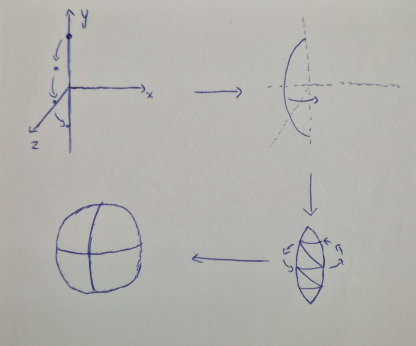 y
x
z